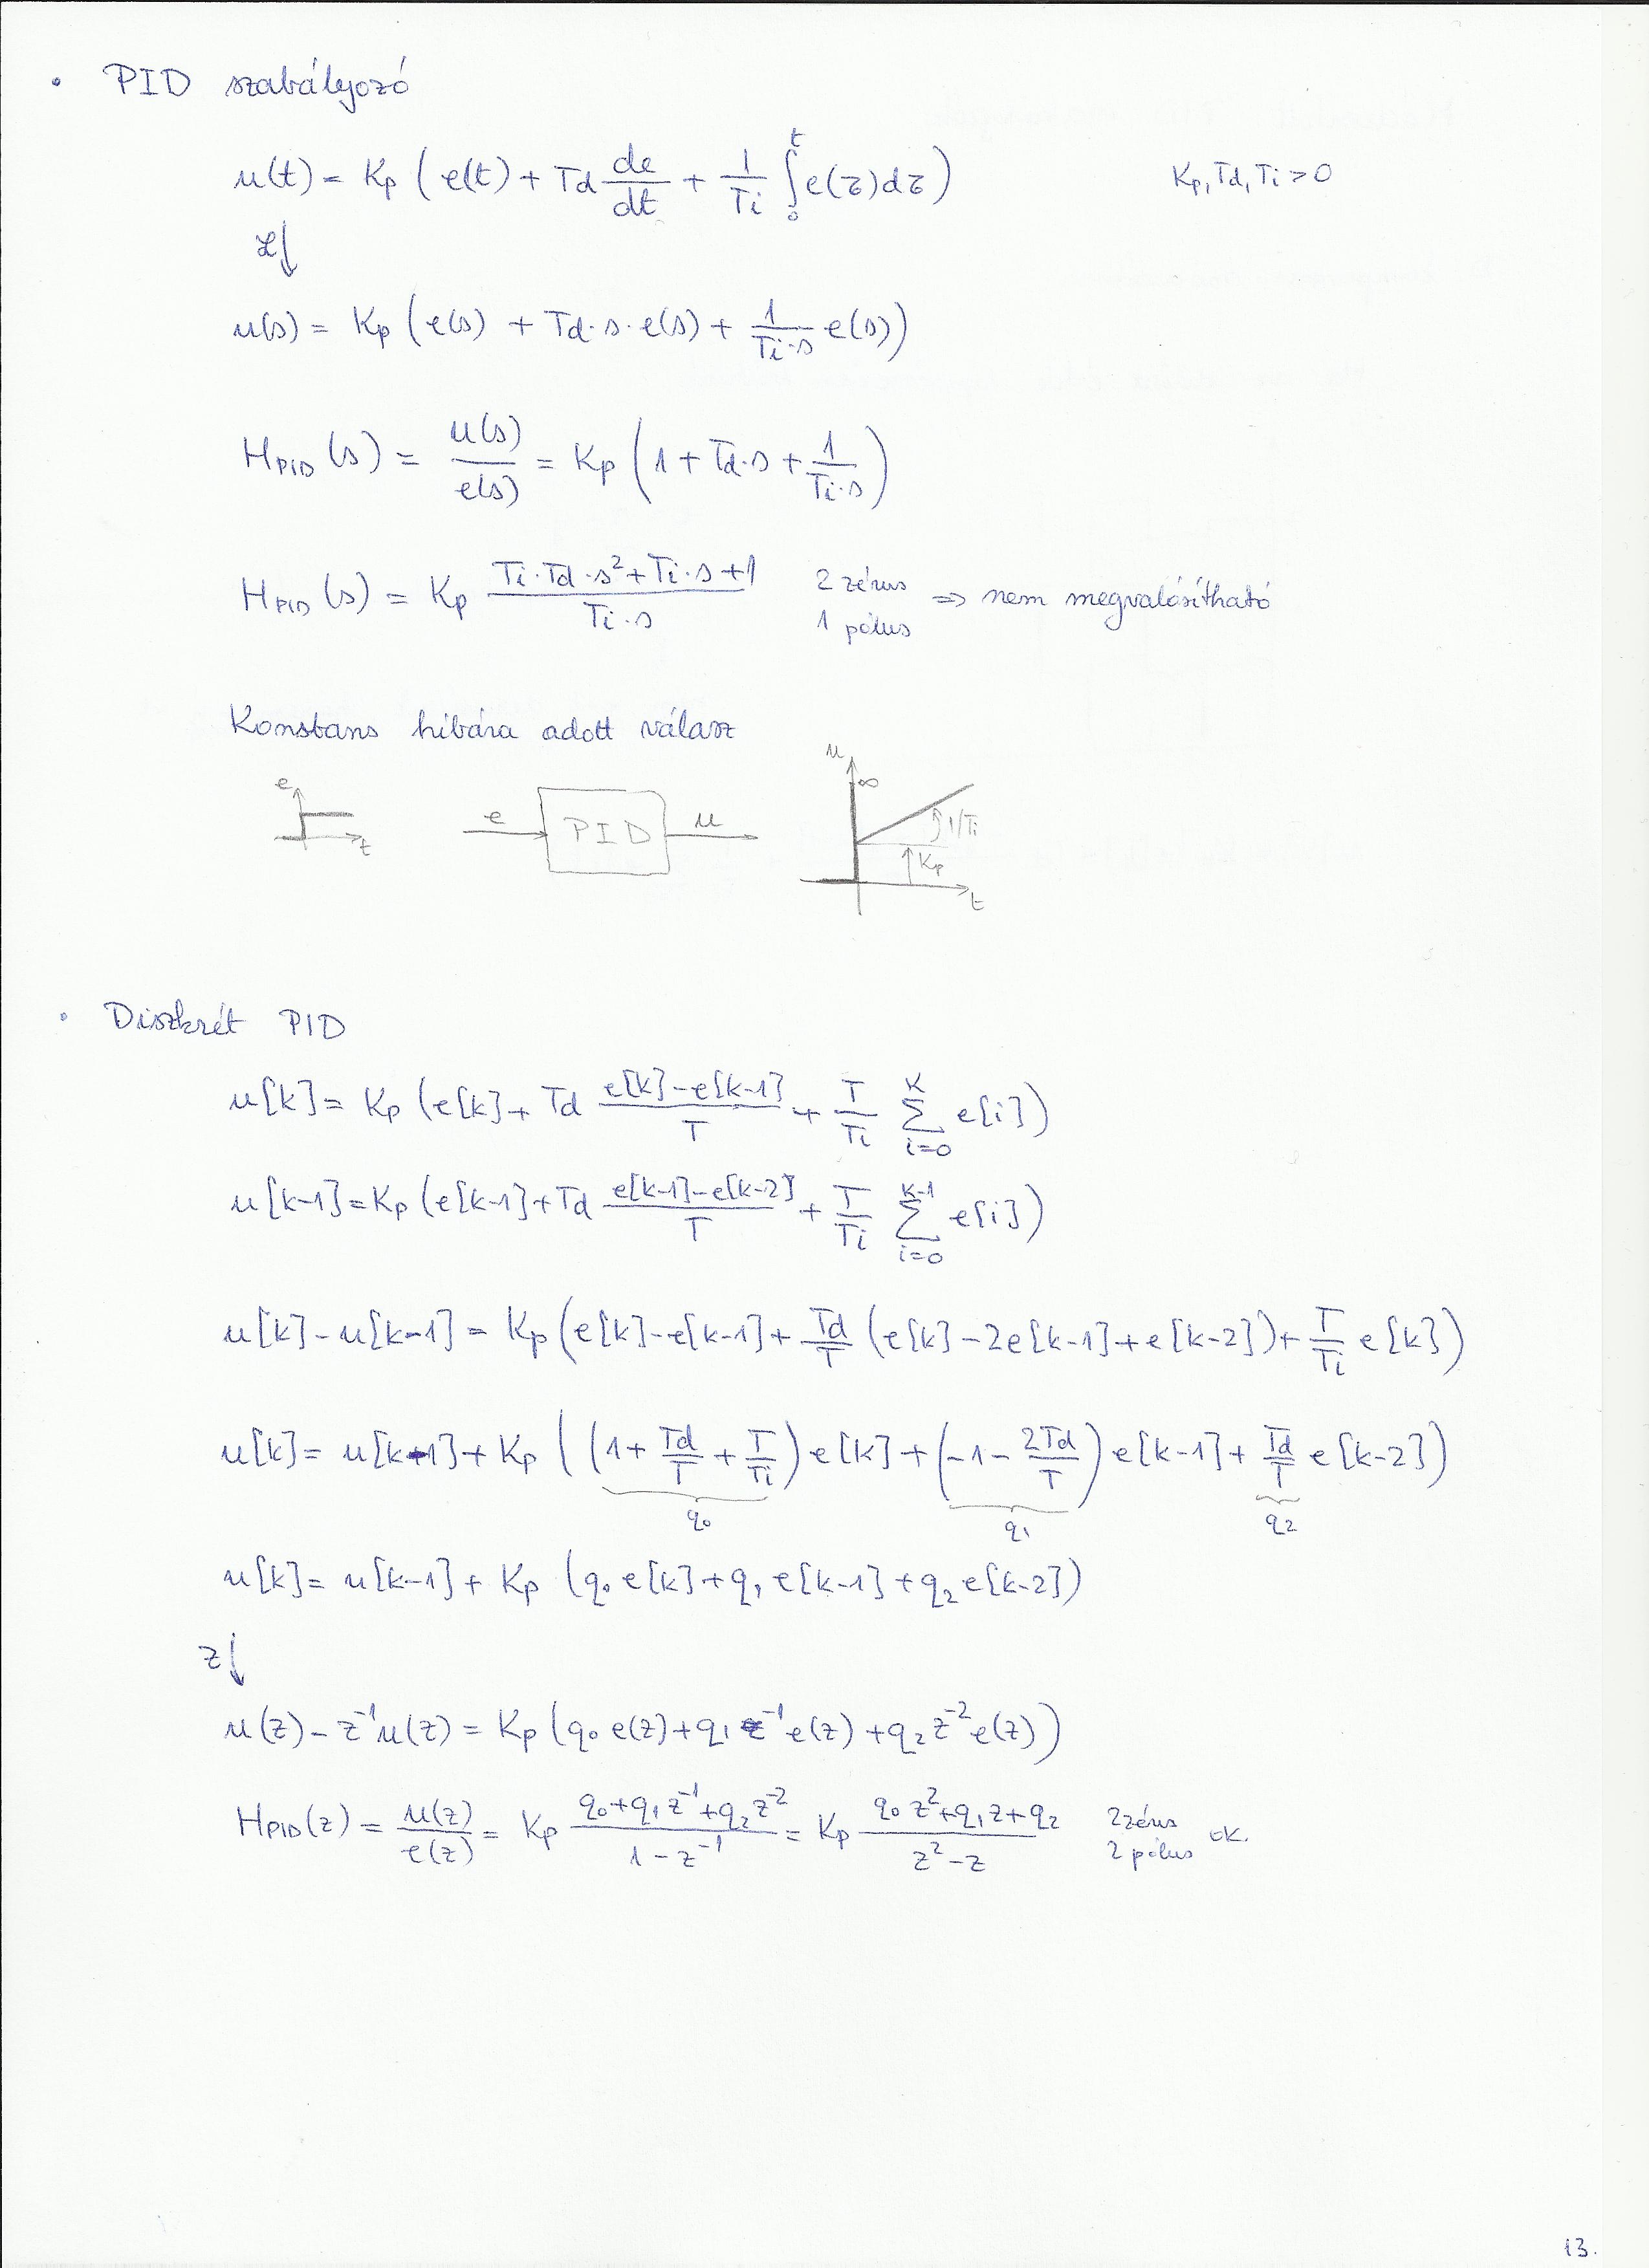 • PID szabályozó
u(t) = Kp ( e(t) + Td de/dt + 1/Ti ∫₀ᵗ e(τ)dτ )    Kp, Td, Ti > 0
ℒ↓
u(s) = Kp ( e(s) + Td·s·e(s) + 1/(Ti·s) e(s) )
H_PID(s) = u(s)/e(s) = Kp ( 1 + Td·s + 1/(Ti·s) )
H_PID(s) = Kp (Ti·Td·s² + Ti·s + 1)/(Ti·s)    2 zérus 1 pólus ⇒ nem megvalósítható
Konstans hibára adott válasz
e t    e PID u    u ∞ 1/Ti Kp t
• Diszkrét PID
u[k] = Kp ( e[k] + Td (e[k]-e[k-1])/T + T/Ti Σ_{i=0}^{K} e[i] )
u[k-1] = Kp ( e[k-1] + Td (e[k-1]-e[k-2])/T + T/Ti Σ_{i=0}^{K-1} e[i] )
u[k] - u[k-1] = Kp ( e[k] - e[k-1] + Td/T ( e[k] - 2e[k-1] + e[k-2] ) + T/Ti e[k] )
u[k] = u[k-1] + Kp ( (1 + Td/T + T/Ti) e[k] + (-1 - 2Td/T) e[k-1] + Td/T e[k-2] )
q₀ q₁ q₂
u[k] = u[k-1] + Kp ( q₀ e[k] + q₁ e[k-1] + q₂ e[k-2] )
z↓
u(z) - z⁻¹u(z) = Kp ( q₀ e(z) + q₁ z⁻¹ e(z) + q₂ z⁻² e(z) )
H_PID(z) = u(z)/e(z) = Kp (q₀ + q₁ z⁻¹ + q₂ z⁻²)/(1 - z⁻¹) = Kp (q₀ z² + q₁ z + q₂)/(z² - z)    2 zérus 2 pólus ok.
13.